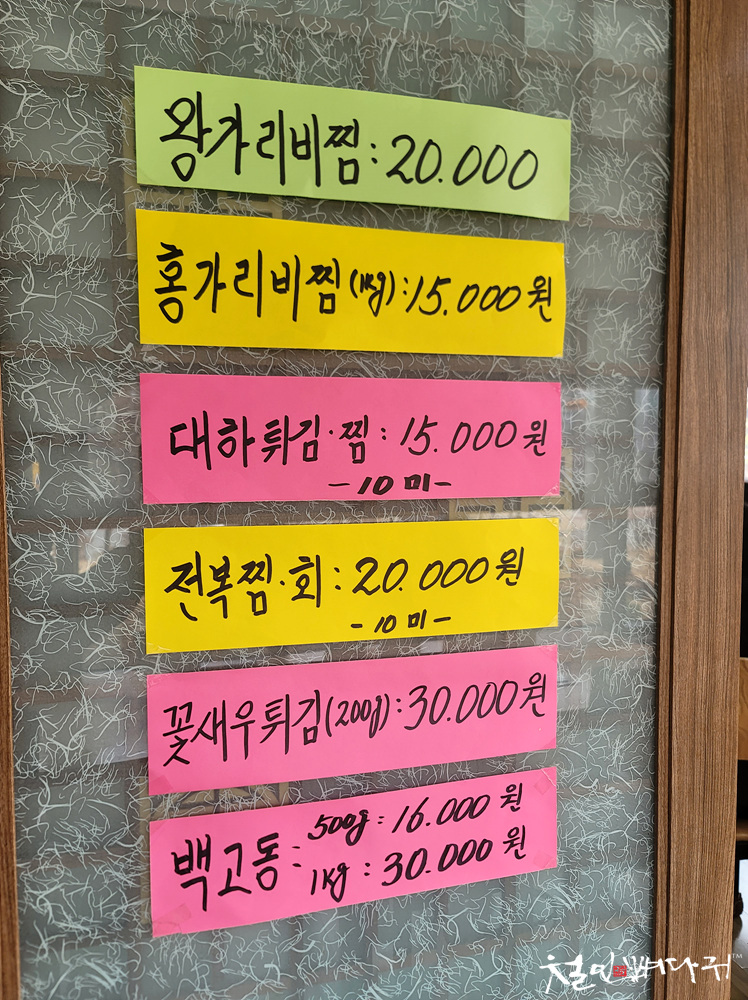 왕가리비찜 : 20.000
홍가리비찜(1kg) : 15.000원
대하튀김·찜 : 15.000원
-10미-
전복찜·회 : 20.000원
-10미-
꽃새우튀김(200g) : 30.000원
백고동 : 500g : 16.000원
1kg : 30.000원
철인뼈다귀™